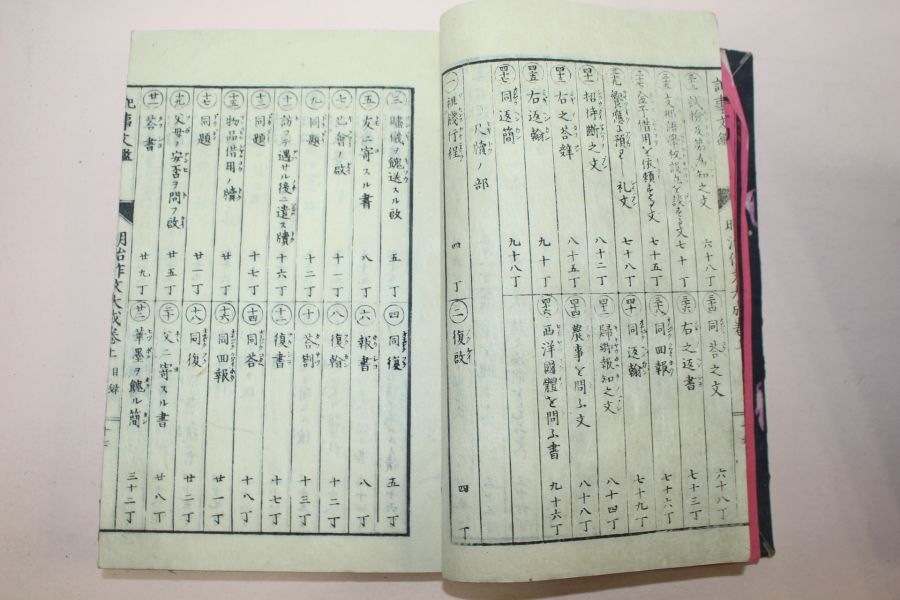 三十三 試檢及第為知之文 六十八丁
三十四 同答之文 六十八丁
七十丁
三十六 右之返書 七十三丁
三十七 金子借用を依頼する文 七十五丁
三十八 同回報 七十六丁
三十九 饗應に預る礼文 七十八丁
四十 同返翰 七十九丁
招待斷之文 八十二丁
歸鄕報知之文 八十四丁
右之答辞 八十五丁
農事を問ふ文 八十八丁
四十五 右返翰 九十丁
四十六 西洋國體を問ふ書 九十六丁
四十七 同返簡 九十八丁
尺牘ノ部
一 祖餞行程 四丁
二 復啟 四丁
三 蠟燭ヲ餽送スル啟 五丁
四 同復 五丁
五 友ニ寄スル書 八丁
六 報書 八丁
七 ノ啟 十一丁
八 復翰 十二丁
九 同題 十二丁
十 答割 十三丁
十一 訪フテ遇サル後ニ遣ス牘 十六丁
十二 復書 十七丁
十三 同題 十七丁
十四 同答 十八丁
十五 物品借用ノ牘 廿丁
十六 同回報 廿一丁
十七 同題 廿一丁
十八 同復 廿二丁
十九 父母ノ安否ヲ問フ啟 廿五丁
二十 父ニ寄スル書 廿八丁
廿一 答書 廿九丁
廿二 華墨ヲ餽ル簡 三十二丁
記事文鑑
明治作文大成卷上 目錄